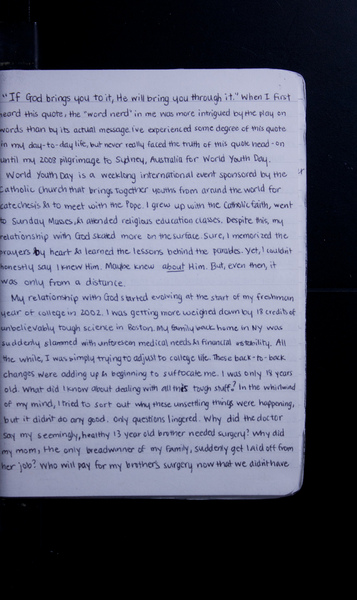 "If God brings you to it, He will bring you through it." When I first
heard this quote, the "word nerd" in me was more intrigued by the play on
words than by its actual message. I've experienced some degree of this quote
in my day-to-day life, but never really faced the truth of this quote head-on
until my 2008 pilgrimage to Sydney, Australia for World Youth Day.
World Youth Day is a weeklong international event sponsored by the
Catholic Church that brings together youths from around the world for
catechesis & to meet with the Pope. I grew up with the Catholic faith, went
to Sunday Masses, & attended religious education classes. Despite this, my
relationship with God skated more on the surface. Sure, I memorized the
prayers by heart & learned the lessons behind the parables. Yet, I couldn't
honestly say I knew Him. Maybe know about Him. But, even then, it
was only from a distance.
My relationship with God started evolving at the start of my freshman
year of college in 2002. I was getting more weighed down by 18 credits of
unbelievably tough science in Boston. My family back home in NY was
suddenly slammed with unforeseen medical needs & financial instability. All
the while, I was simply trying to adjust to college life. These back-to-back
changes were adding up & beginning to suffocate me. I was only 18 years
old. What did I know about dealing with all this tough stuff? In the whirlwind
of my mind, I tried to sort out why these unsettling things were happening,
but it didn't do any good. Only questions lingered. Why did the doctor
say my seemingly, healthy 13 year old brother needed surgery? Why did
my mom, the only breadwinner of my family, suddenly get laid off from
her job? Who will pay for my brother's surgery now that we didn't have